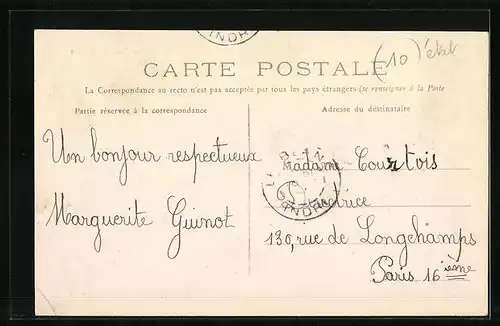 INDR
(10) état
CARTE POSTALE
La Correspondance au recto n'est pas acceptée par tous les pays étrangers (se renseigner à la Poste
Partie réservée à la correspondance
Adresse du déstinataire
Un bonjour respectueux
Marguerite Guinot
Madame Courtois
INDRE
130, rue de Longchamps
Paris 16 ième